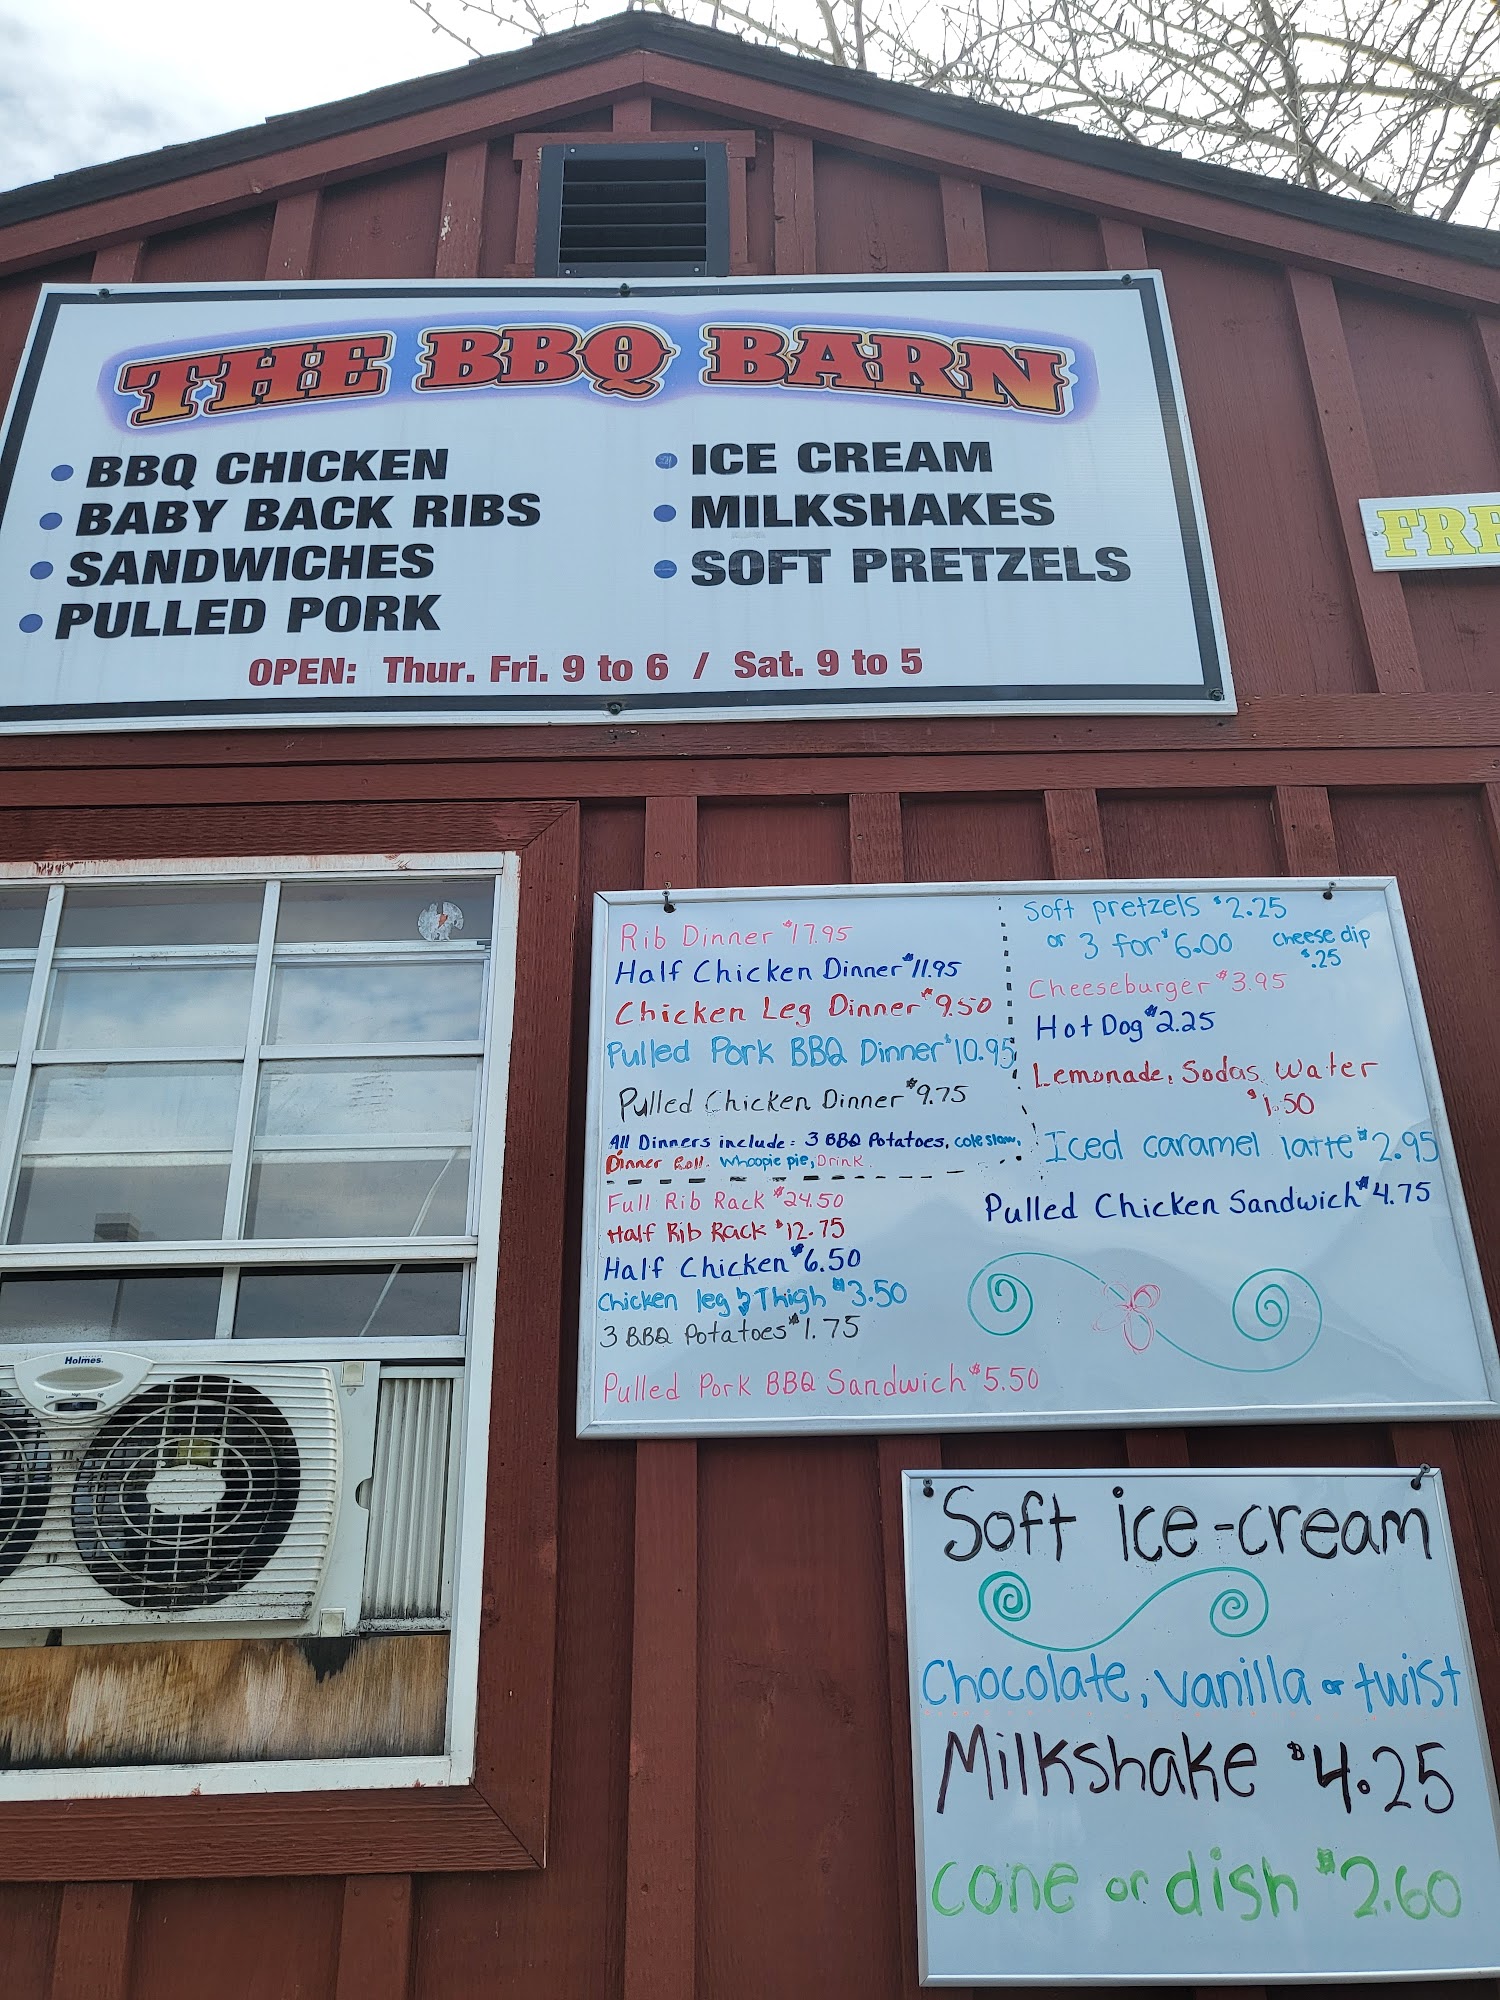 THE BBQ BARN
• BBQ CHICKEN
• BABY BACK RIBS
• SANDWICHES
• PULLED PORK
• ICE CREAM
• MILKSHAKES
• SOFT PRETZELS
OPEN: Thur. Fri. 9 to 6 / Sat. 9 to 5
FRE
Rib Dinner $17.95
Half Chicken Dinner $11.95
Chicken Leg Dinner $9.50
Pulled Pork BBQ Dinner $10.95
Pulled Chicken Dinner $9.75
All Dinners include: 3 BBQ Potatoes, coleslaw,
Dinner Roll. Whoopie pie, Drink
Full Rib Rack $24.50
Half Rib Rack $12.75
Half Chicken $6.50
Chicken leg & Thigh $3.50
3 BBQ Potatoes $1.75
Pulled Pork BBQ Sandwich $5.50
Soft pretzels $2.25
or 3 for $6.00
cheese dip
$.25
Cheeseburger $3.95
Hot Dog $2.25
Lemonade, Sodas, Water
$1.50
Iced caramel latte $2.95
Pulled Chicken Sandwich $4.75
Holmes
Soft ice-cream
Chocolate, vanilla or twist
Milkshake $4.25
cone or dish $2.60